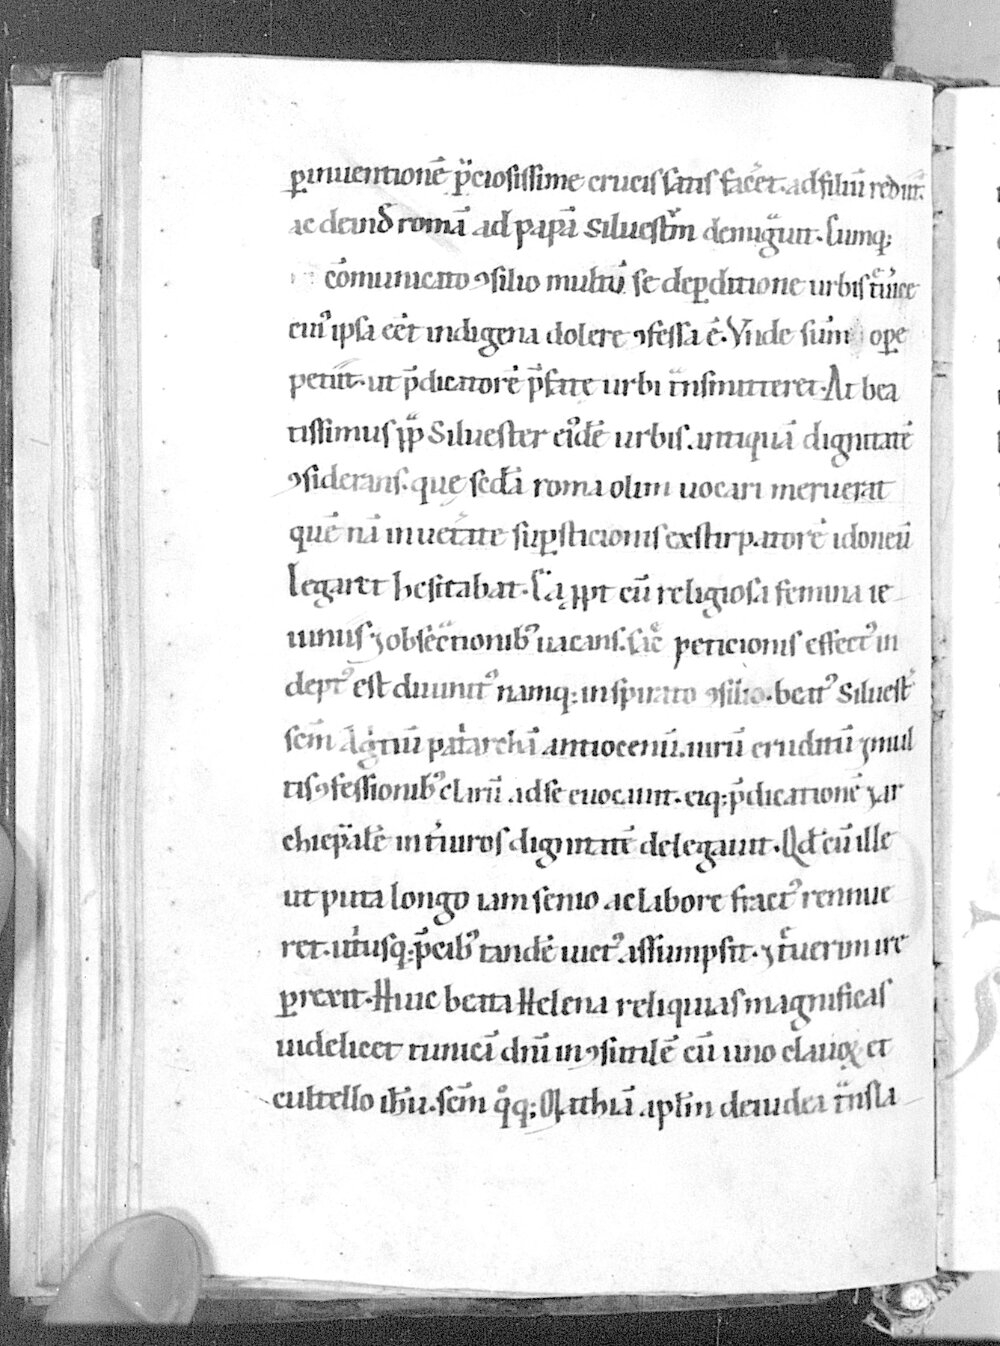 ꝑ inuentionē p̄ciosissime crucis satis faceret. ad filiū rediit.
ac deind̄ romā ad papā Siluestrū demigͣuit. Cumq;
cōmunicato ꝯsilio multū se de ꝑditione urbis treuice
cuiꝰ ipsa eēt indigena dolere ꝯfessa ē. Vnde sūm oꝑe
petiit. ut p̄dicatorē p̄fate urbi tͣnsmitteret. At bea
tissimus pp̄ Siluester eiꝰdē urbis antiquā dignitatē
ꝯsiderans. quę sēda roma olim uocari meruerat
quē nā in ueritate suꝑsticionis exstirpatorē idoneū
legaret hesitabat. S; ca ꝓpt cū religiosa femina ie
iuniis ⁊ obsecrationibꝰ uacans. sic peticionis effectꝰ in
deptꝰ est diuinitꝰ namq; inspirato ꝯsilio. beatꝰ Siluestʼ
scm̄ Agͥtiū patriarchā antiocenū. uirū eruditū ⁊ mul
tis ꝯfessionibꝰ clarū ad se euocauit. eiq; p̄dicationē ⁊ ar
chiep̄alē in treuiros dignitatē delegauit. Qd̄ cū ille
ut puta longo iam senio ac labore fractꝰ rennue
ret. utriusq; p̄cibꝰ tandē uictꝰ assumpsit. ⁊ treuerim ire
ꝑrexit. Huic beata Helena reliquias magnificas
uidelicet tunicā dn̄i inꝯsutilē cū uno clauoꝝ et
cultello ih̄u. scm̄ qͦq; Mathiā aplm̄ de iudea tͣnsla